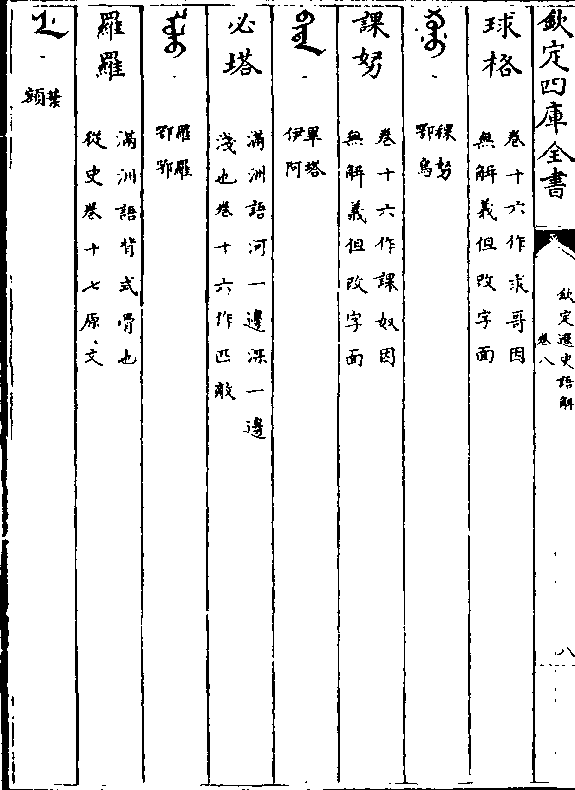 欽定四庫全書
欽定遼史語解
卷八
八
球格
卷十六作求哥因
無解義但改字面
稞努
鄂烏
課努
卷十六作課奴因
無解義但改字面
ᠪᡳᡨᠠ
畢塔
伊阿
必塔
滿洲語河一邊深一邊
淺也卷十六作匹敵
ᠯᠣᠯᠣ
鄂鄂
羅羅
滿洲語背式骨也
從史卷十七原文
ᠶᡝ
葉
額